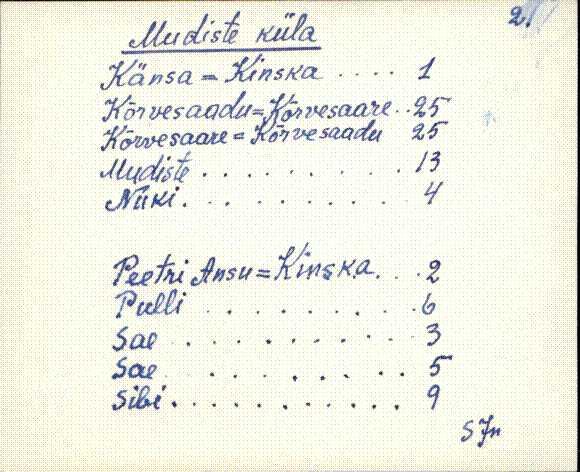 2.
Mudiste küla
Känsa = Kinska .... 1
Kõrvesaadu = Kõrvesaare .. 25
Kõrvesaare = Kõrvesaadu 25
Mudiste . . . . . . . . . 13
Niiki . . . . . . . . 4
Peetri Ansu = Kinska. . . . 2
Pulli . . . . . . . . 6
Sae . . . . . . . . 3
Sae . . . . . . . . 5
Sibi . . . . . . . . . 9